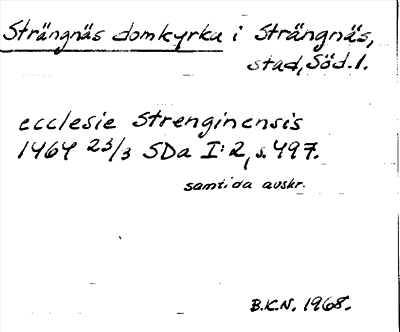 Strängnäs domkyrka i Strängnäs,
stad, Söd. l.
ecclesie Strenginensis
1464 23/3 SDa I:2, s. 497.
samtida avskr.
B.K.N. 1968.